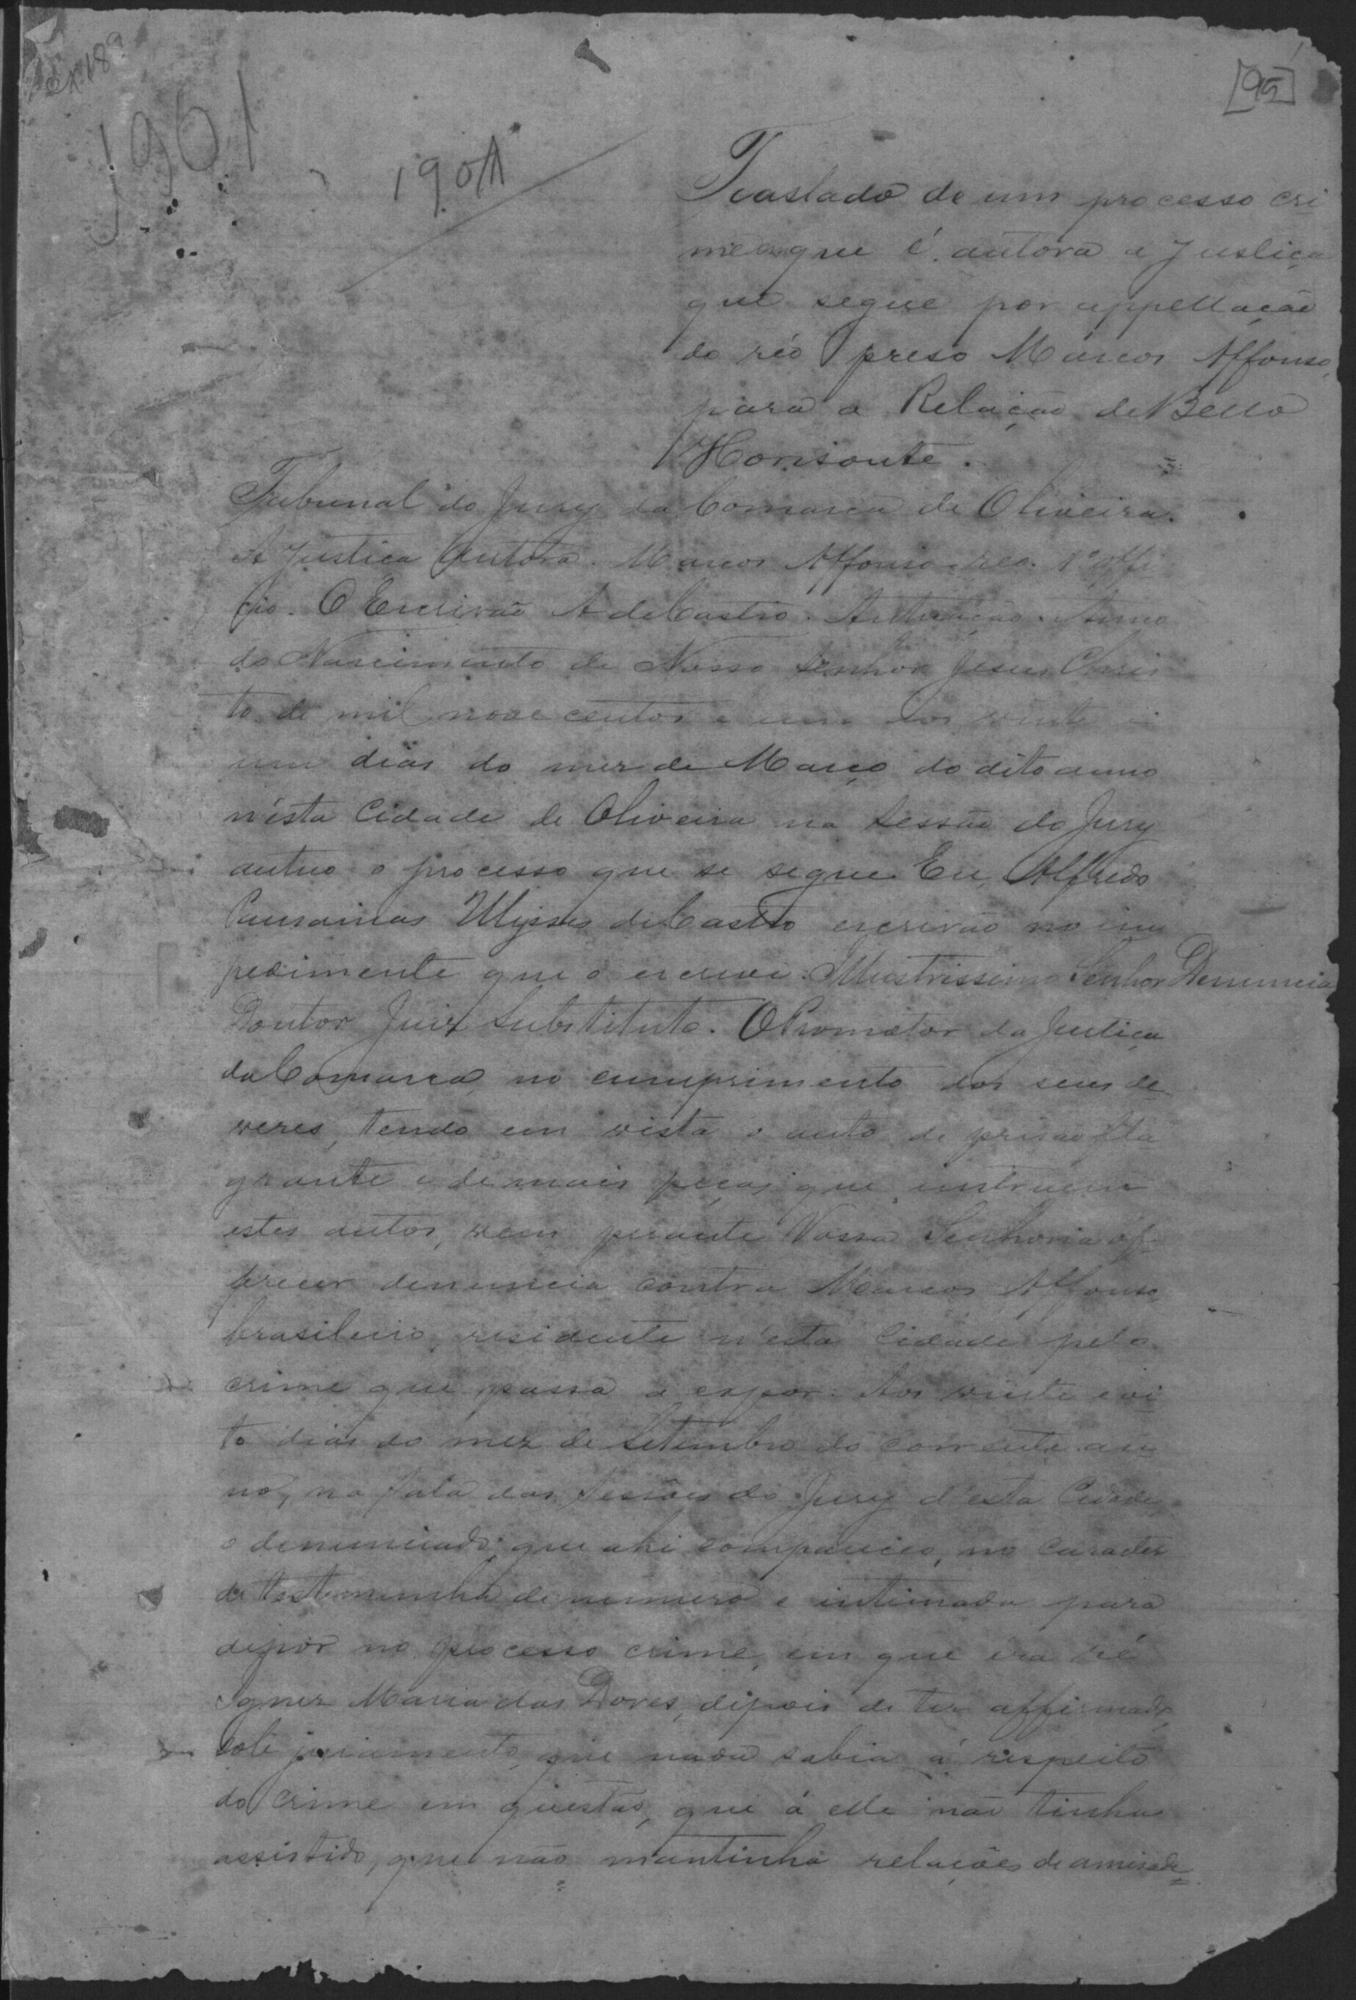 1901
1901
[95]
Traslado de um processo cri
me em que é autora a Justiça
que segue por appellação
do réo preso Marcos Affonso,
para a Relação de Bello
Horisonte.
Tribunal do Jury da Comarca de Oliveira.
A Justiça Autora. Marcos Affonso reo. 1º offi
cio. O Escrivão A de Castro. Autuação. Anno
do Nascimento de Nosso Senhor Jesus Chris
to de mil nove centos e um aos vinte e
um dias do mez de Março do dito anno
n'esta Cidade de Oliveira na Sessão do Jury
autuo o processo que se segue. Eu, Alfredo
Pausanias Ulysses de Castro escrivão no im
pedimento que o escrevi. Illustrissimo Senhor Denuncia
Doutor Juiz Substituto. O Promotor da Justiça
da Comarca, no cumprimento dos seus de
veres, tendo em vista o auto de prisão fla
grante e de mais peças que instruem
estes autos, vem perante Vossa Senhoria of
ferecer denuncia contra Marcos Affonso,
brasileiro, residente n'esta Cidade pelo
crime que passa a expor: Aos vinte e oi
to dias do mez de Setembro do corrente an
no, na sala das Sessões do Jury d'esta Cidade,
o denunciado, que ahi compareceo, no caracter
de testemunha de numero e intimada para
depor no processo crime, em que era ré
Ignez Maria das Dores, depois de ter affirmado,
sob juramento, que nada sabia á respeito
do crime em questão, que á elle não tinha
assistido, que não mantinha relações de amisade